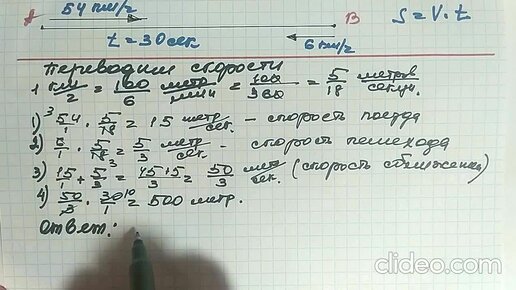 A 54 км/г B S = V · t
t = 30 сек 6 км/г
Переводим скорости
1 км/г = 100/6 метр/мин = 100/360 = 5/18 метров/секун.
1) 54/1 · 5/18 = 15 метр/сек. - скорость поезда
2) 6/1 · 5/18 = 5/3 метр/сек - скорость пешехода
3) 15/1 + 5/3 = 45+5/3 = 50/3 мет/сек. (скорость сближения)
4) 50/3 · 30/1 = 500 метр.
Ответ:
clideo.com